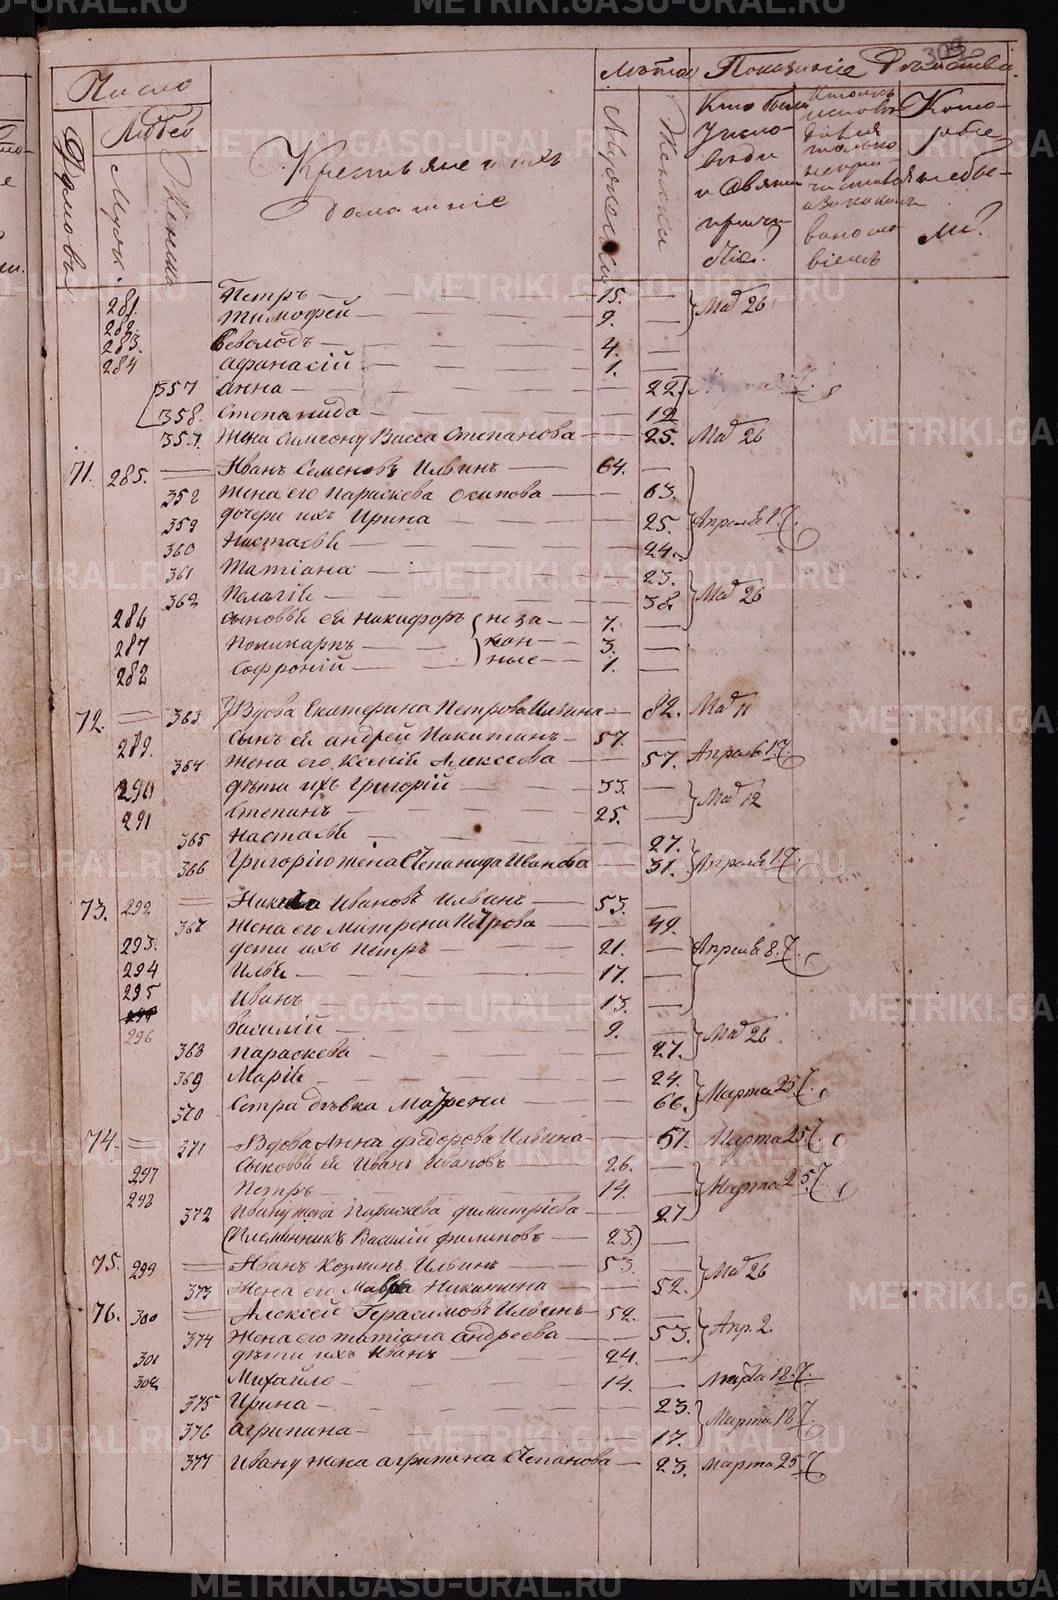 Число
Людей
Дворовъ
Мужч.
Крестьяне и ихъ
домашніе
Лѣта
Показаніе
Мужескъ
Женски
Кто былъ
у испо-
вѣди
и Святи
причас-
тіе?
Кото-
рые
не бы-
ли?
281. Петръ — 15. —
282. Тимофей — 9. — Маія 26
283. Всеволодъ — 4. —
284 Афанасій — 1. —
357 Анна — 22.
358. Степанида — 12
357. Жена Симеону Васса Степанова — 25. Маія 26
71. 285. Иванъ Семеновъ Ильинъ — 64. —
352 Жена его Параскева Осипова — 63.
359 дочери ихъ Ирина — 25. Апреля 17.
360 Настасья — 24.
361 Татіана — 23.
362 Пелагія — 38. Маія 26
286 сыновья ея Никифоръ неза- 7. —
287 Поликарпъ кон- 3. —
282 Софроній ные 1. —
72. 363 Вдова Екатерина Петрова Ильина — 82. Маія 11
289. Сынъ ея Андрей Никитинъ — 57. —
364 Жена его Ксенія Алексеева — 57. Апреля 17
290 дѣти ихъ Григорій — 33. — Маія 12
291 Степанъ — 25. —
365 Настасья — 27.
366 Григорію жена Степанида Иванова — 31. Апреля 17.
73. 292 Никита Ивановъ Ильинъ — 53. —
367 Жена его Матрена Петрова — 49.
293. дети ихъ Петръ — 21. — Апреля 8.
294 Илья — 17. —
295 Иванъ 13. —
296 Василій — 9. — Маія 26
368 Параскева — 27.
369 Марія — 24.
370 Сестра дѣвка Матрена — 66. Марта 25
74. 371 Вдова Анна Федорова Ильина — 51. Марта 25
297 Сыновья ея Иванъ Ивановъ 26. —
298 Петръ — 14. — Марта 25
372 Ивану жена Параскева Димитріева — 27
(Племянникъ Василій Филиповъ — 23) —
75. 299 Иванъ Козминъ Ильинъ — 53. — Маія 26
373 Жена его Мавра Никитина — 52.
76. 300 Алексей Герасимовъ Ильинъ — 52. —
374 Жена его Татіана Андреева — 53. Апр. 2.
301 дѣти ихъ Иванъ — 24. —
302 Михайло — 14. — Марта 18.
375 Ирина — 23.
376 Агрипина — 17. Марта 18
377 Ивану жена Агрипина Степанова — 23. Марта 25
METRIKI.GASO-URAL.RU